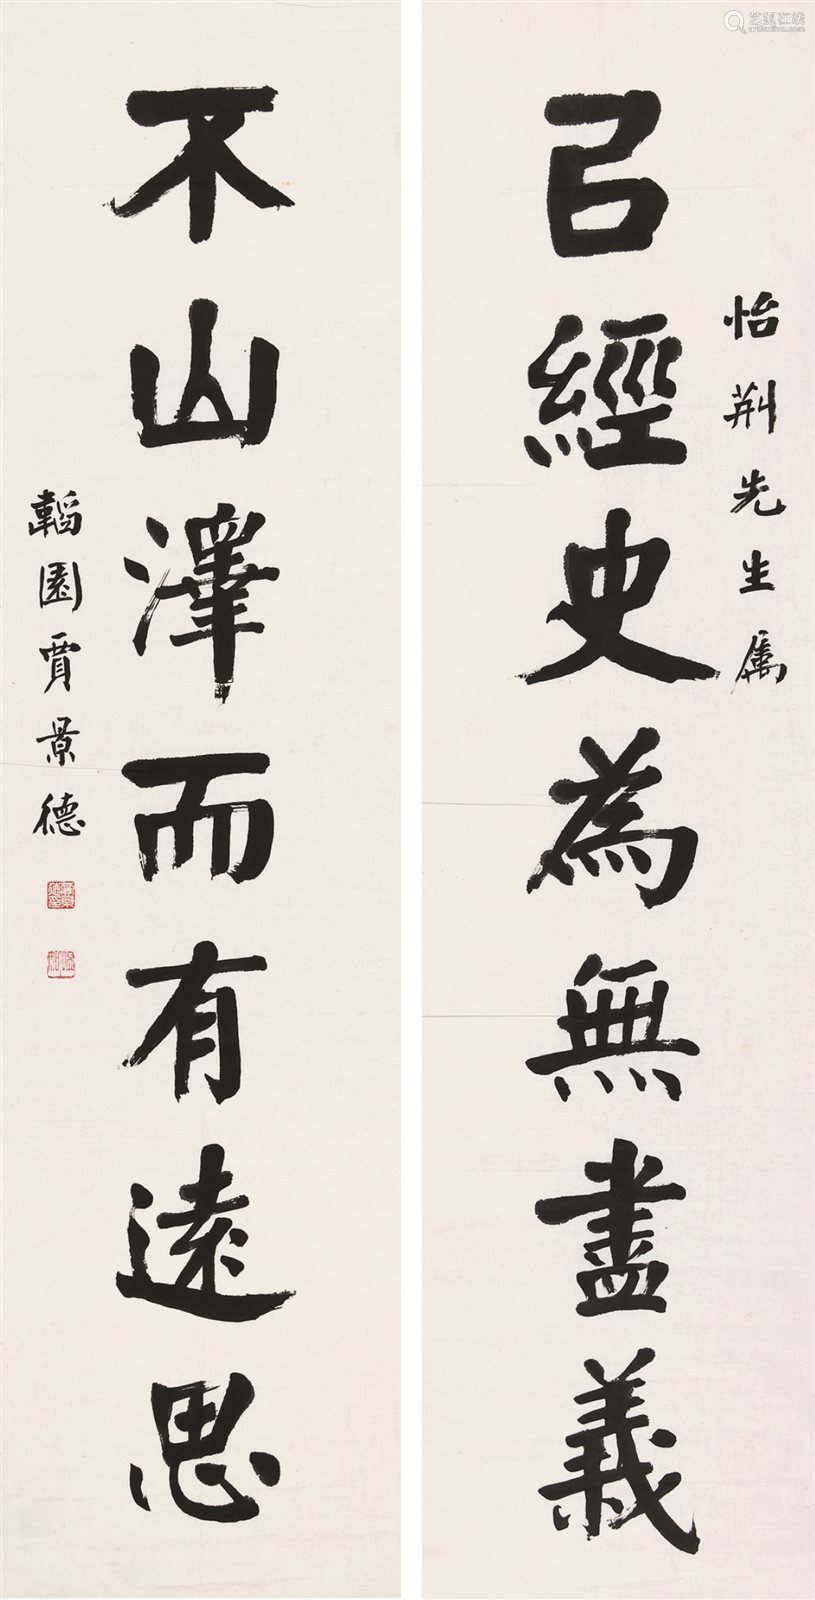 怡荆先生属
㠯經史為無盡義
不山澤而有遠思
韜園賈景德
艺狐在线
artfoxlive.com